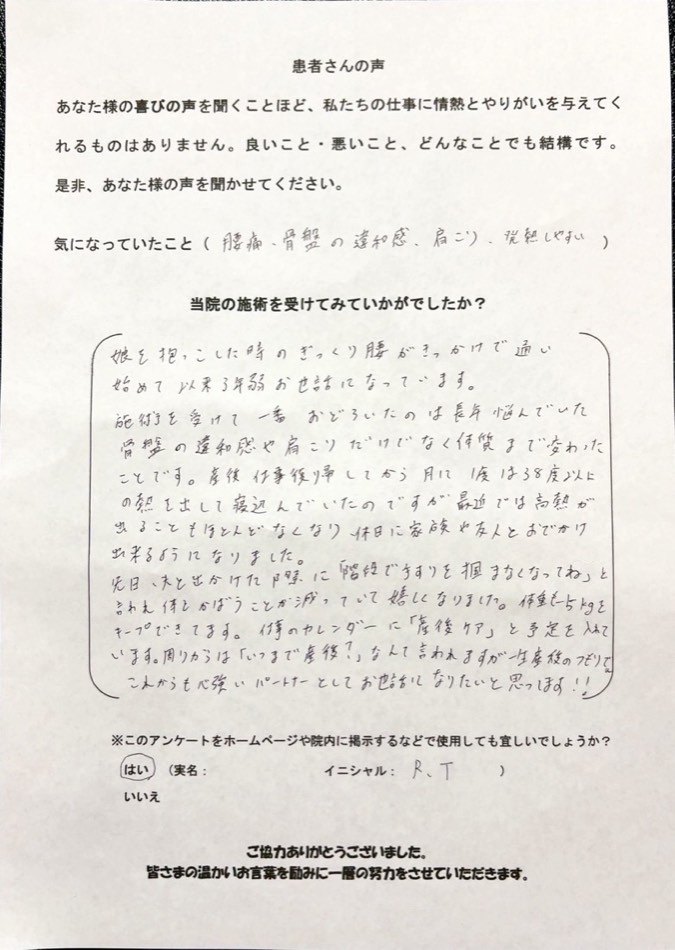 患者さんの声
あなた様の喜びの声を聞くことほど、私たちの仕事に情熱とやりがいを与えてく
れるものはありません。良いこと・悪いこと、どんなことでも結構です。
是非、あなた様の声を聞かせてください。
気になっていたこと（ 腰痛、骨盤の違和感、肩こり、発熱しやすい ）
当院の施術を受けてみていかがでしたか？
娘を抱っこした時のぎっくり腰がきっかけで通い
始めて以来3年弱お世話になっています。
施術を受けて一番おどろいたのは長年悩んでいた
骨盤の違和感や肩こりだけでなく体質まで変わった
ことです。産後仕事復帰してから月に1度は38度以上
の熱を出して寝込んでいたのですが最近では高熱が
出ることもほとんどなくなり、休日に家族や友人とおでかけ
出来るようになりました。
先日、夫と出かけた際に「階段で手すりを掴まなくなってね」と
言われ体をかばうことが減っていて嬉しくなりました。体重も-5kgを
キープできてます。仕事のカレンダーに「産後ケア」と予定を入れて
います。周りからは「いつまで産後？」なんて言われますが一生産後のつもりで
これからも心強いパートナーとしてお世話になりたいと思ってます!!
※このアンケートをホームページや院内に掲示するなどで使用しても宜しいでしょうか？
はい （実名： イニシャル： R、T ）
いいえ
ご協力ありがとうございました。
皆さまの温かいお言葉を励みに一層の努力をさせていただきます。